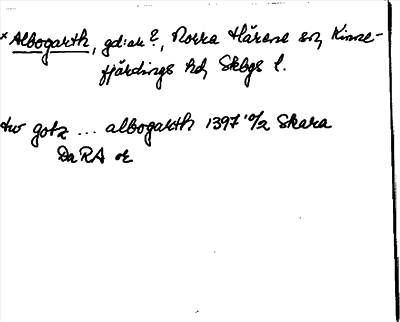 *Albogarth, gd:ar?, Norra Härene sn, Kinne-
fjärdings hd, Skbgs l.
tw gotz ... albogarth 1397 10/2 Skara
DaRA or